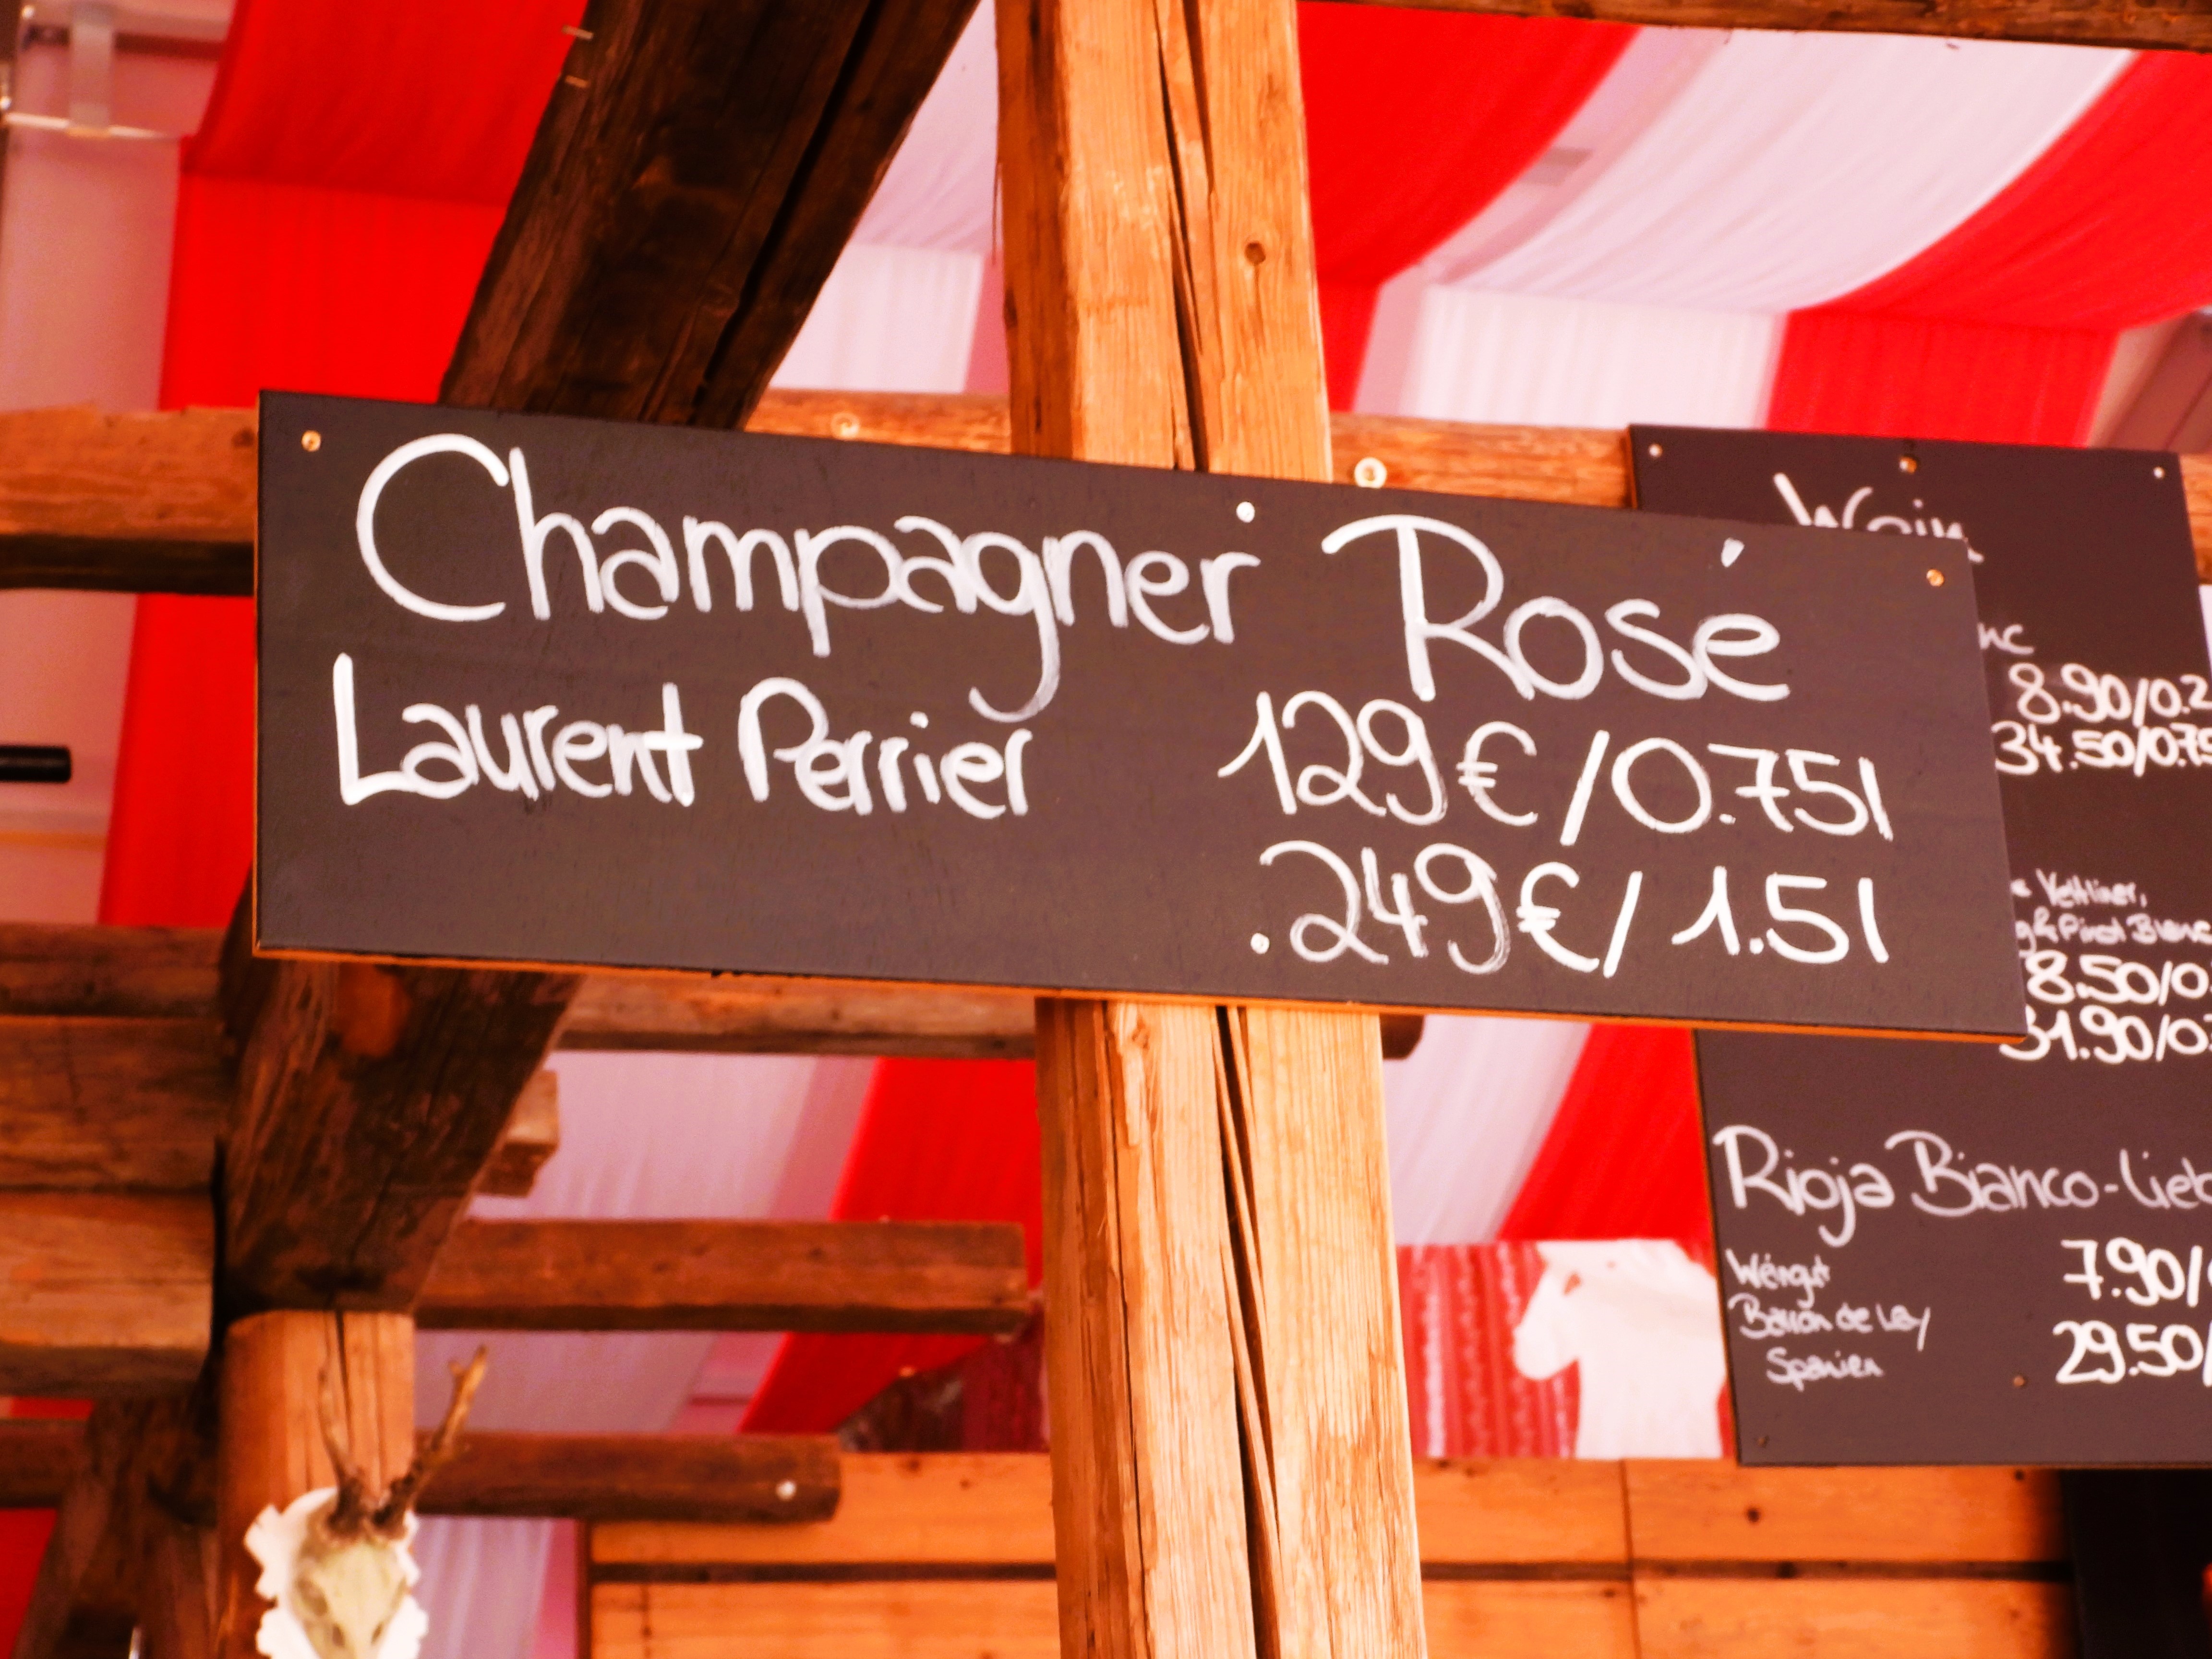 Champagner Rosé
Laurent Perrier 129€/0.75l
249€/1.5l
Wein
8.90/0.2
34.50/0.75
Veltliner,
& Pinot Blanc
8.50/0.
31.90/0.
Rioja Bianco-
Weingut 7.90/
Baron de Ley
Spanien 29.50/